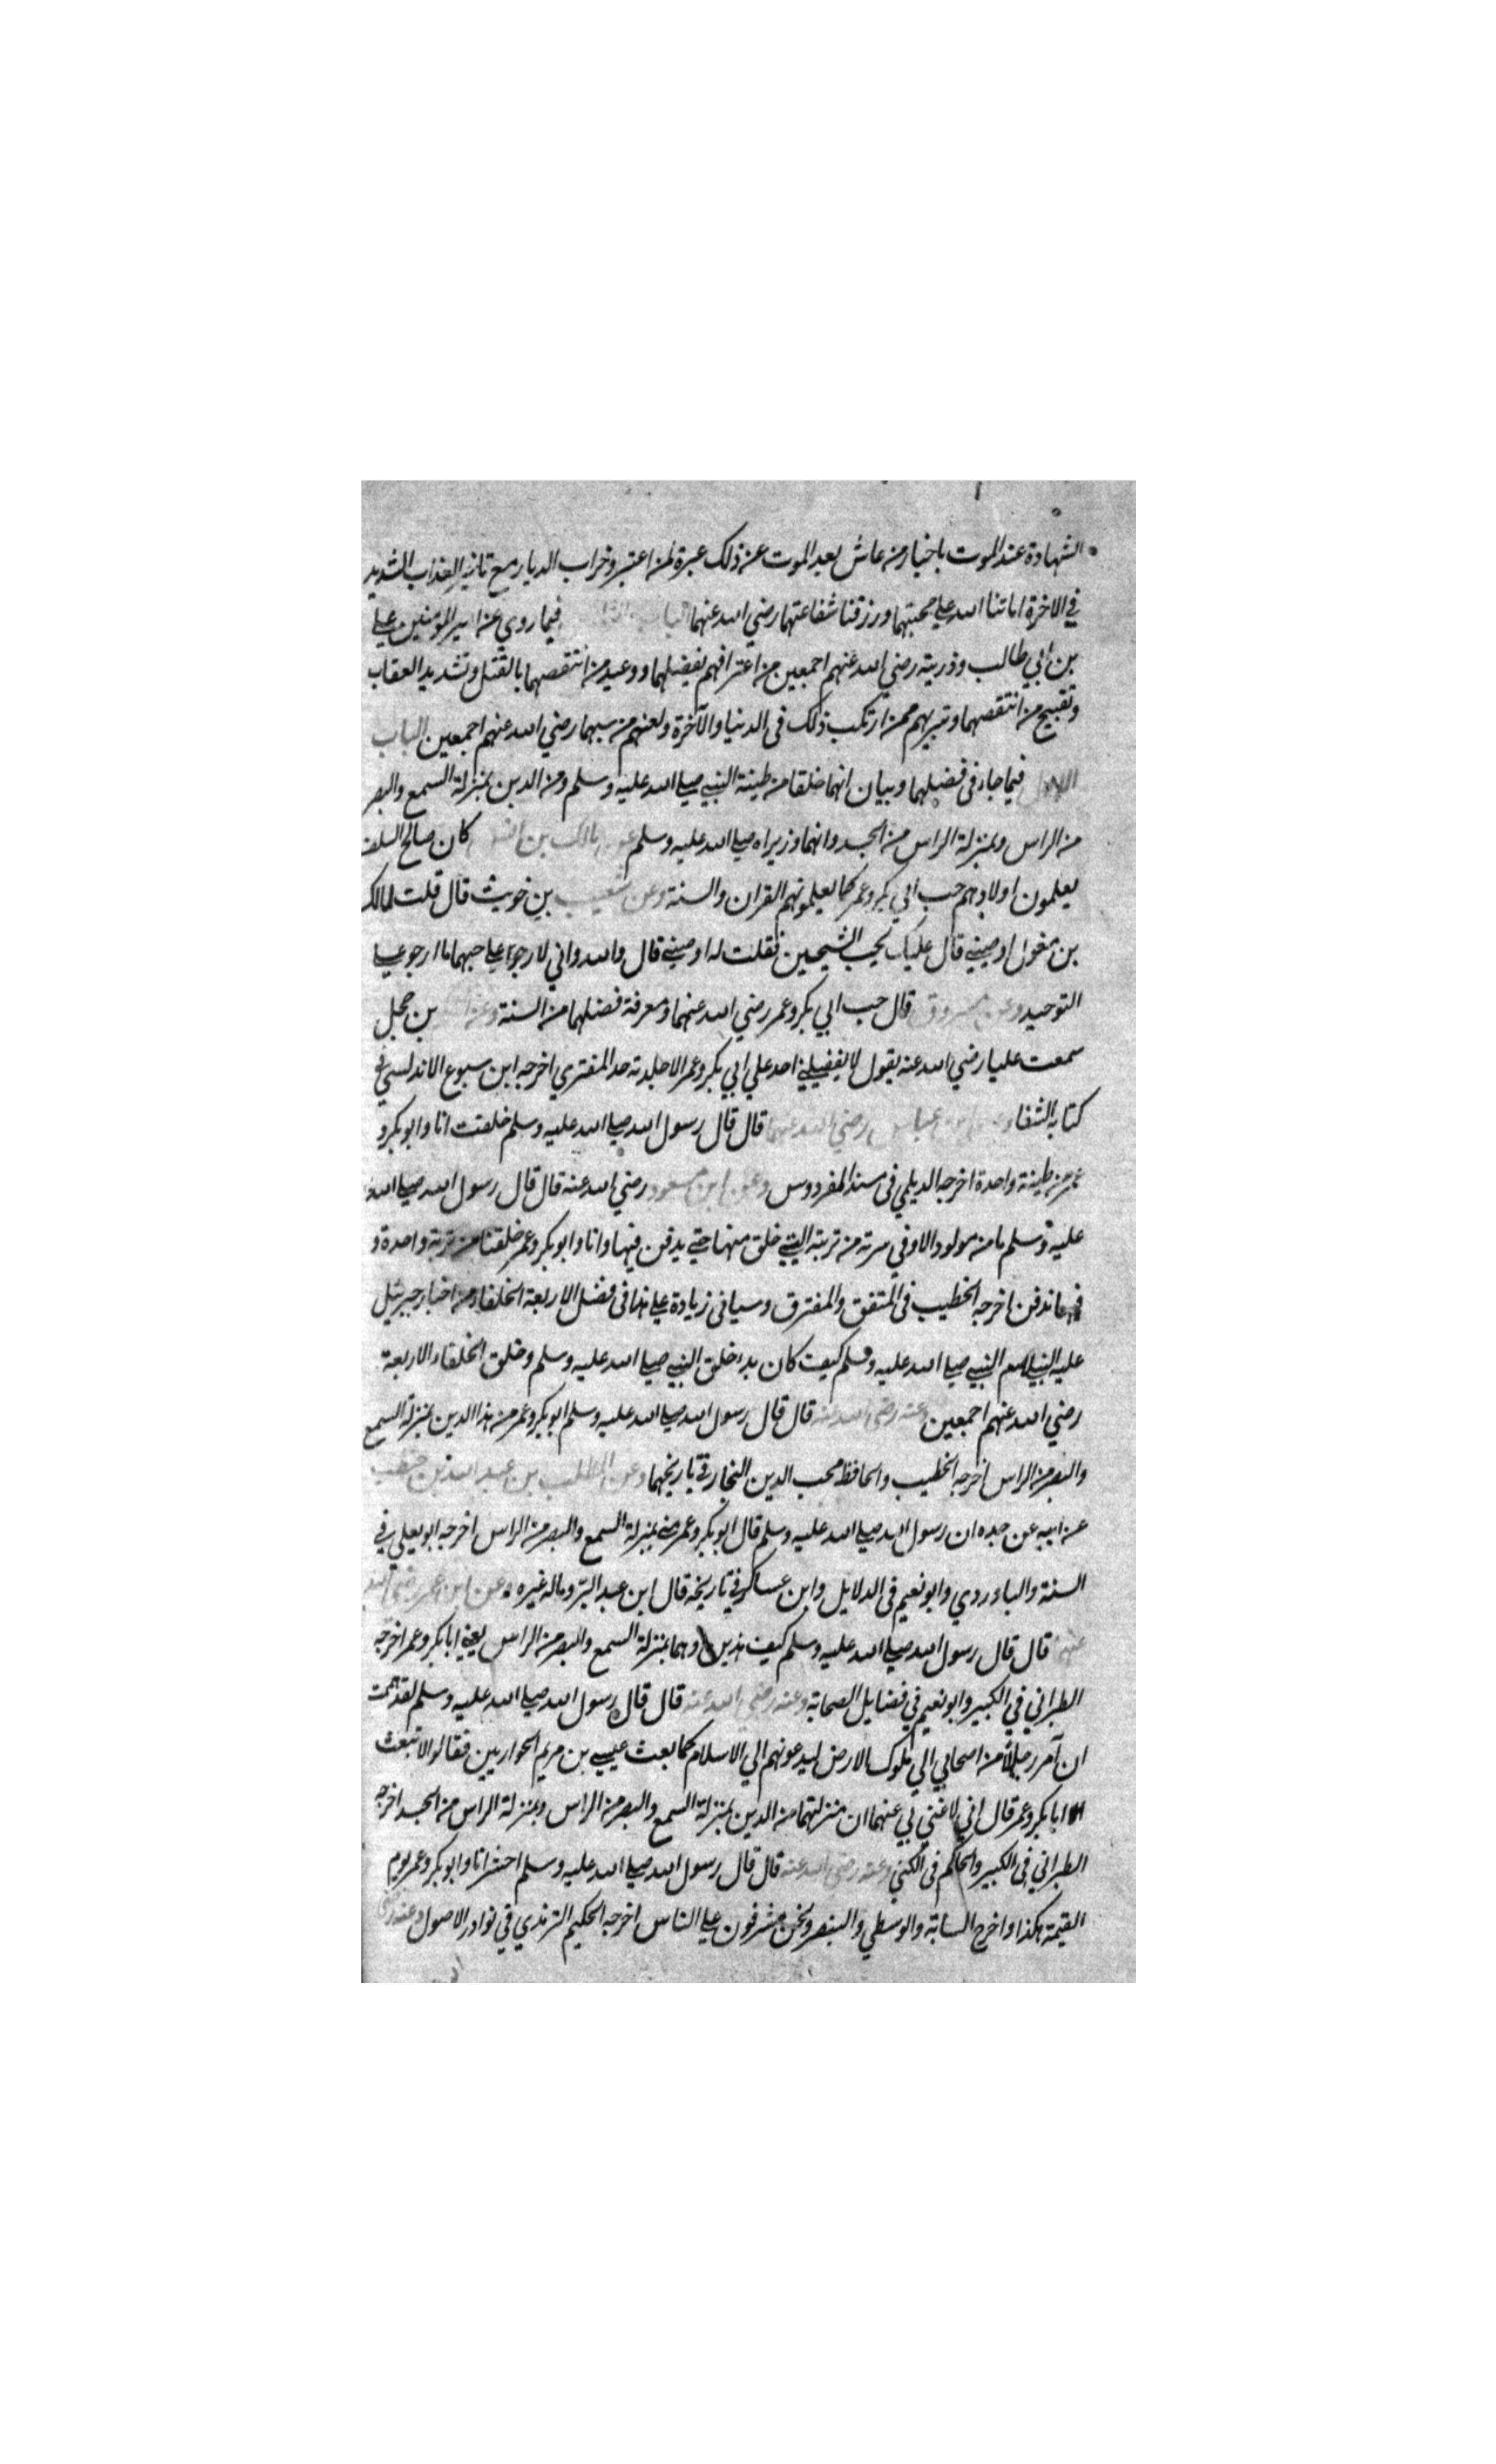 الشهادة عند الموت باخبار من عاش بعد الموت عن ذلك عبرة لمن اعتبر وخراب الديار مع العذاب الشديد
في الاخرة اماتنا الله علي محبتهما ورزقنا شفاعتهما رضي الله عنهما الباب فيما روي عن امير المؤمنين علي
بن ابي طالب وذريته رضي الله عنهم اجمعين من اعترافهم بفضلهما ووعيد من انتقصهما بالقتل وتشديد العقاب
وتقبيح من انتقصهما وتبريهم ممن ارتكب ذلك في الدنيا والآخرة ولعنهم من سبهما رضي الله عنهم اجمعين الباب
الاول فيما جاء في فضلهما وبيان انهما خلقا من طينة النبي صلي الله عليه وسلم ومن الدين بمنزلة السمع والبصر
من الراس وبمنزلة الراس من الجسد وانهما وزيراه صلي الله عليه وسلم عن مالك بن انس كان صالح السلف
يعلمون اولادهم حب ابي بكر وعمر كما يعلمونهم القران والسنة وعن شعيب بن خويث قال قلت لمالك
بن مغول اوصيني قال عليك بحب الشيخين فقلت له اوصيني قال والله واني لارجو علي حبهما ما ارجو علي
التوحيد وعن مسروق قال حب ابي بكر وعمر رضي الله عنهما ومعرفة فضلهما من السنة وعن بن حجل
سمعت عليا رضي الله عنه يقول لا يفضلني احد علي ابي بكر وعمر الا جلدته حد المفتري اخرجه ابن سبوع الاندلسي في
كتابه الشفا وعن ابن عباس رضي الله عنهما قال قال رسول الله صلي الله عليه وسلم خلقت انا وابو بكر و
عمر من طينة واحدة اخرجه الديلمي في مسند الفردوس وعن ابن مسعود رضي الله عنه قال قال رسول الله صلي الله
عليه وسلم ما من مولود الا وفي سرته من تربته التي خلق منها حتي يدفن فيها وانا وابو بكر وعمر خلقنا من تربة واحدة و
فيها ندفن اخرجه الخطيب في المتفق والمفترق وسياتي زيادة علي هذا في فضل الاربعة الخلفاء من اخبار جبرئيل
عليه النبي صلي الله عليه وسلم كيف كان بدء خلق النبي صلي الله عليه وسلم وخلق الخلفاء الاربعة
رضي الله عنهم اجمعين وعنه رضي الله عنه قال قال رسول الله صلي الله عليه وسلم ابو بكر وعمر من هذا الدين بمنزلة السمع
والبصر من الراس اخرجه الخطيب والحافظ محب الدين النجار في تاريخهما وعن المطلب بن عبد الله بن حنطب
عن ابيه عن جده ان رسول الله صلي الله عليه وسلم قال ابو بكر وعمر مني بمنزلة السمع والبصر من الراس اخرجه ابو يعلي في
السنة والباوردي وابو نعيم في الدلايل وابن عساكر في تاريخه قال ابن عبد البر وماله غيره وعن ابن عمر رضي الله
عنهما قال قال رسول الله صلي الله عليه وسلم كيف هذين وهما بمنزلة السمع والبصر من الراس يعني ابا بكر وعمر اخرجه
الطبراني في الكبير وابو نعيم في فضايل الصحابة وعنه رضي الله عنه قال قال رسول الله صلي الله عليه وسلم لقد هممت
ان آمر رجلا من اصحابي الي ملوك الارض ليدعونهم الي الاسلام كما بعث عيسي بن مريم الحواريين فقالوا الا تبعث
ابا بكر وعمر قال اني لا غني لي عنهما ان منزلتهما من الدين بمنزلة السمع والبصر من الراس وبمنزلة الراس من الجسد اخرجه
الطبراني في الكبير والحاكم في الكني وعنه رضي الله عنه قال قال رسول الله صلي الله عليه وسلم احشر انا وابو بكر وعمر يوم
القيمة هكذا واخرج السبابة والوسطي والبنصر ونحن مشرفون علي الناس اخرجه الحكيم الترمذي في نوادر الاصول وعنه رضي